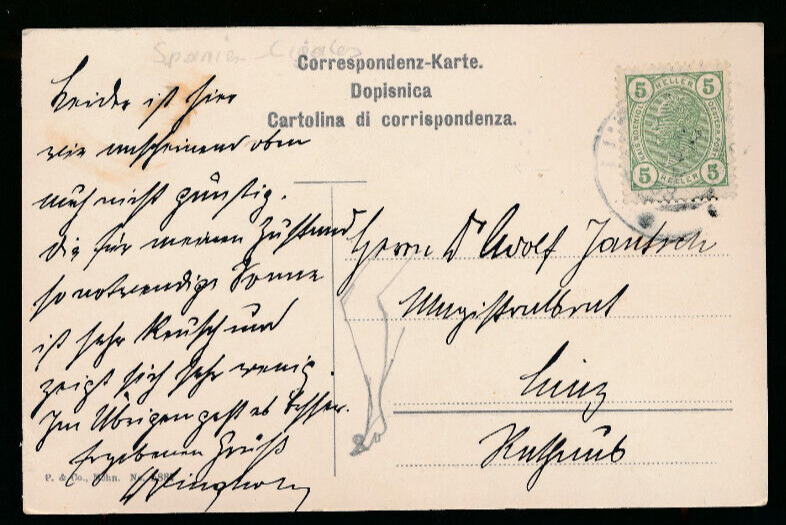 Correspondenz-Karte.
Dopisnica
Cartolina di corrispondenza.
5 HELLER 5
5 HELLER 5
Leider ist hier
wie anscheinend oben
auch nicht günstig.
Die für meinen Zustand
so notwendige Sonne
ist sehr keusch und
zeigt sich sehr wenig.
Im Übrigen geht es besser.
Ergebenen Gruß
Herrn Dr Adolf Jantsch
Magistratsrat
Linz
Rathaus
P. & Co.,